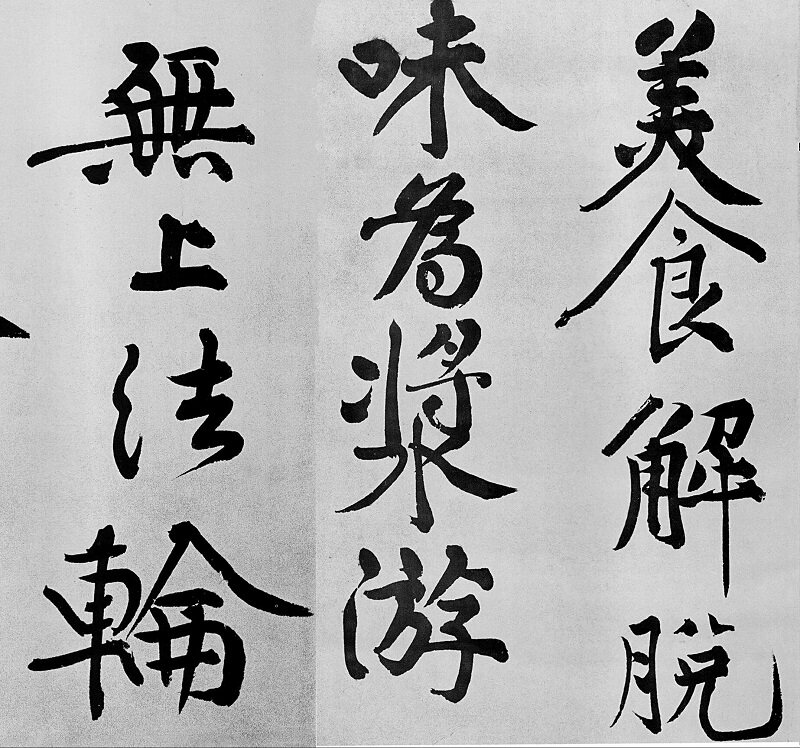 美食解脫
味為漿游
無上法輪